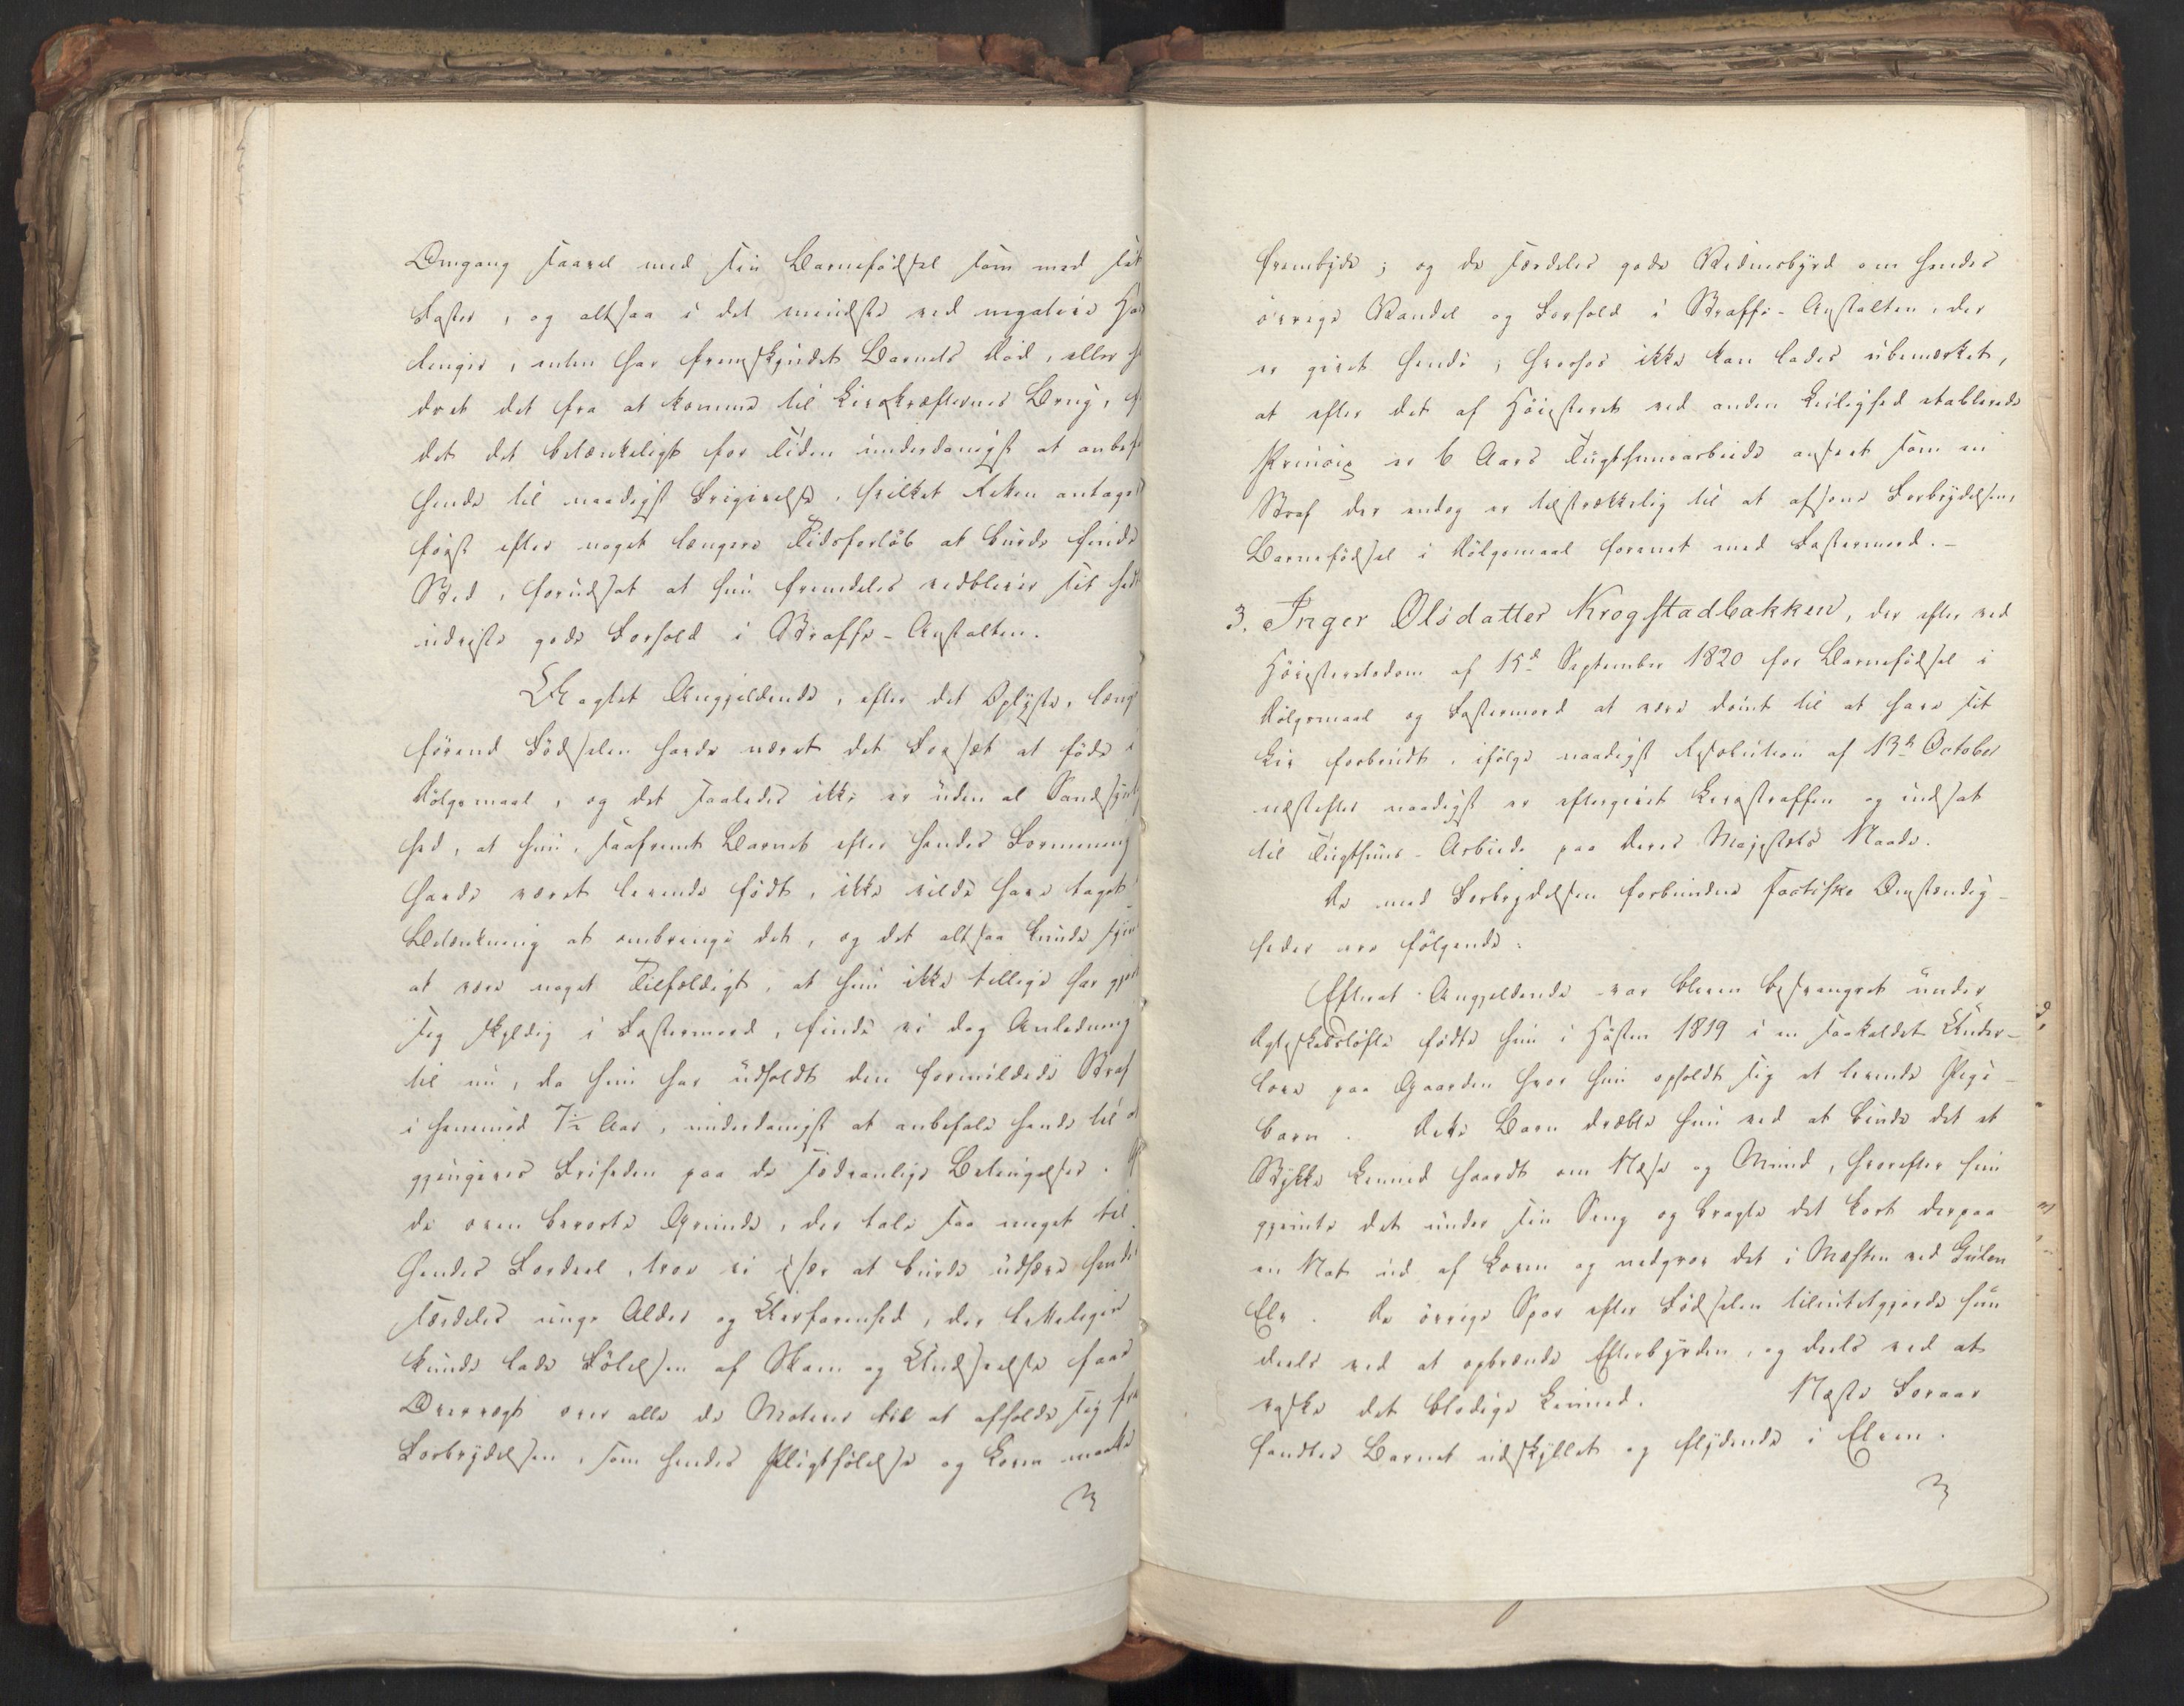 Omgang saavel med sin Barnefödsel som med sit
Foster, og altsaa i det mindste ved negative Ha
linger, enten har fremskyndet Barnets Död, eller h
dret det fra at komme til Livskræfternes Brug,
det det betænkeligt for Tiden underdanigst at anbef
hende til naadigst Frigivelse, hvilket Retten antager
först efter noget længere Tidsforlöb at burde finde
Sted, forudsat at hun fremdeles vedbliver sit hid
udviste gode Forhold i Straffe-Anstalten.
Uagtet Angjeldende, efter det Oplyste, læng
förend Födselen havde næret det Forsæt at föde i
Dölgsmaal, og det saaledes ikke er uden al Sandsyn
hed, at hun, saafremt Barnet efter hendes Formening
havde været levende födt, ikke vilde have taget
Betænkning at ombringe det, og det altsaa kunde syn
at være noget Tilfældigt, at hun ikke tillige har gjort
sig skyldig i Fostermord, finde vi dog Anledning
til nu, da hun har udholdt den formildede Straf
i henimod 7½ Aar, underdanigst at anbefale hende til
gjengives Friheden paa de sædvanlige Betingelser.
de oven berørte Grunde, der tale saa meget til
hendes Fordeel, troe vi især at burde udhæve hendes
særdeles unge Alder og Uerfarenhed, der letteligen
kunde lade Fölelsen af Skam og Undseelse faae
Overvægt over alle de Motiver til at afholde sig fra
Forbrydelsen, som hendes Pligtfölelse og Loven maatte
frembyde; og de særdeles gode Vidnesbyrd om hendes
övrige Vandel og Forhold i Straffe-Anstalten, der
er givet hende; hvorhos ikke kan lades ubemærket,
at efter det af Höiesteret ved anden Leilighed etablerede
Princip er 6 Aars Tugthuusarbeide anseet som en
Straf der endog er tilstrækkelig til at afsone Forbrydelsen,
Barnefödsel i Dölgsmaal forenet med Fostermord.-
3. Inger Olsdatter Krogstadbakken, der efter ved
Höiesteretsdom af 15d September 1820 for Barnefödsel i
Dölgsmaal og Fostermord at være dömt til at have sit
Liv forbrudt, ifölge naadigst Resolution af 13d October
næstefter naadigst er eftergivet Livsstraffen og indsat
til Tugthuus-Arbeide paa Deres Majestæts Naade.
De med Forbrydelsen forbundne factiske Omstændig-
heder ere fölgende:
Efterat Angjeldende var bleven besvangret under
Ægteskabslöfte födte hun i Hösten 1819 i en saakaldet Under-
love paa Gaarden hvor hun opholdt sig et levende Pige-
barn. Dette Barn dræbte hun ved at binde det et
Stykke Linned haardt om Næse og Mund, hvorefter hun
gjemte det under sin Seng og bragte det kort derpaa
en Nat ud af Loven og nedgrov det i Mælen ved Gulen
Elv. De övrige Spor efter Födselen tilintetgjorde hun
deels ved at opbrænde Efterbyrden, og deels ved at
vaske det blodige Linned. Næste Foraar
fandtes Barnet udskyllet og flydende i Elven.